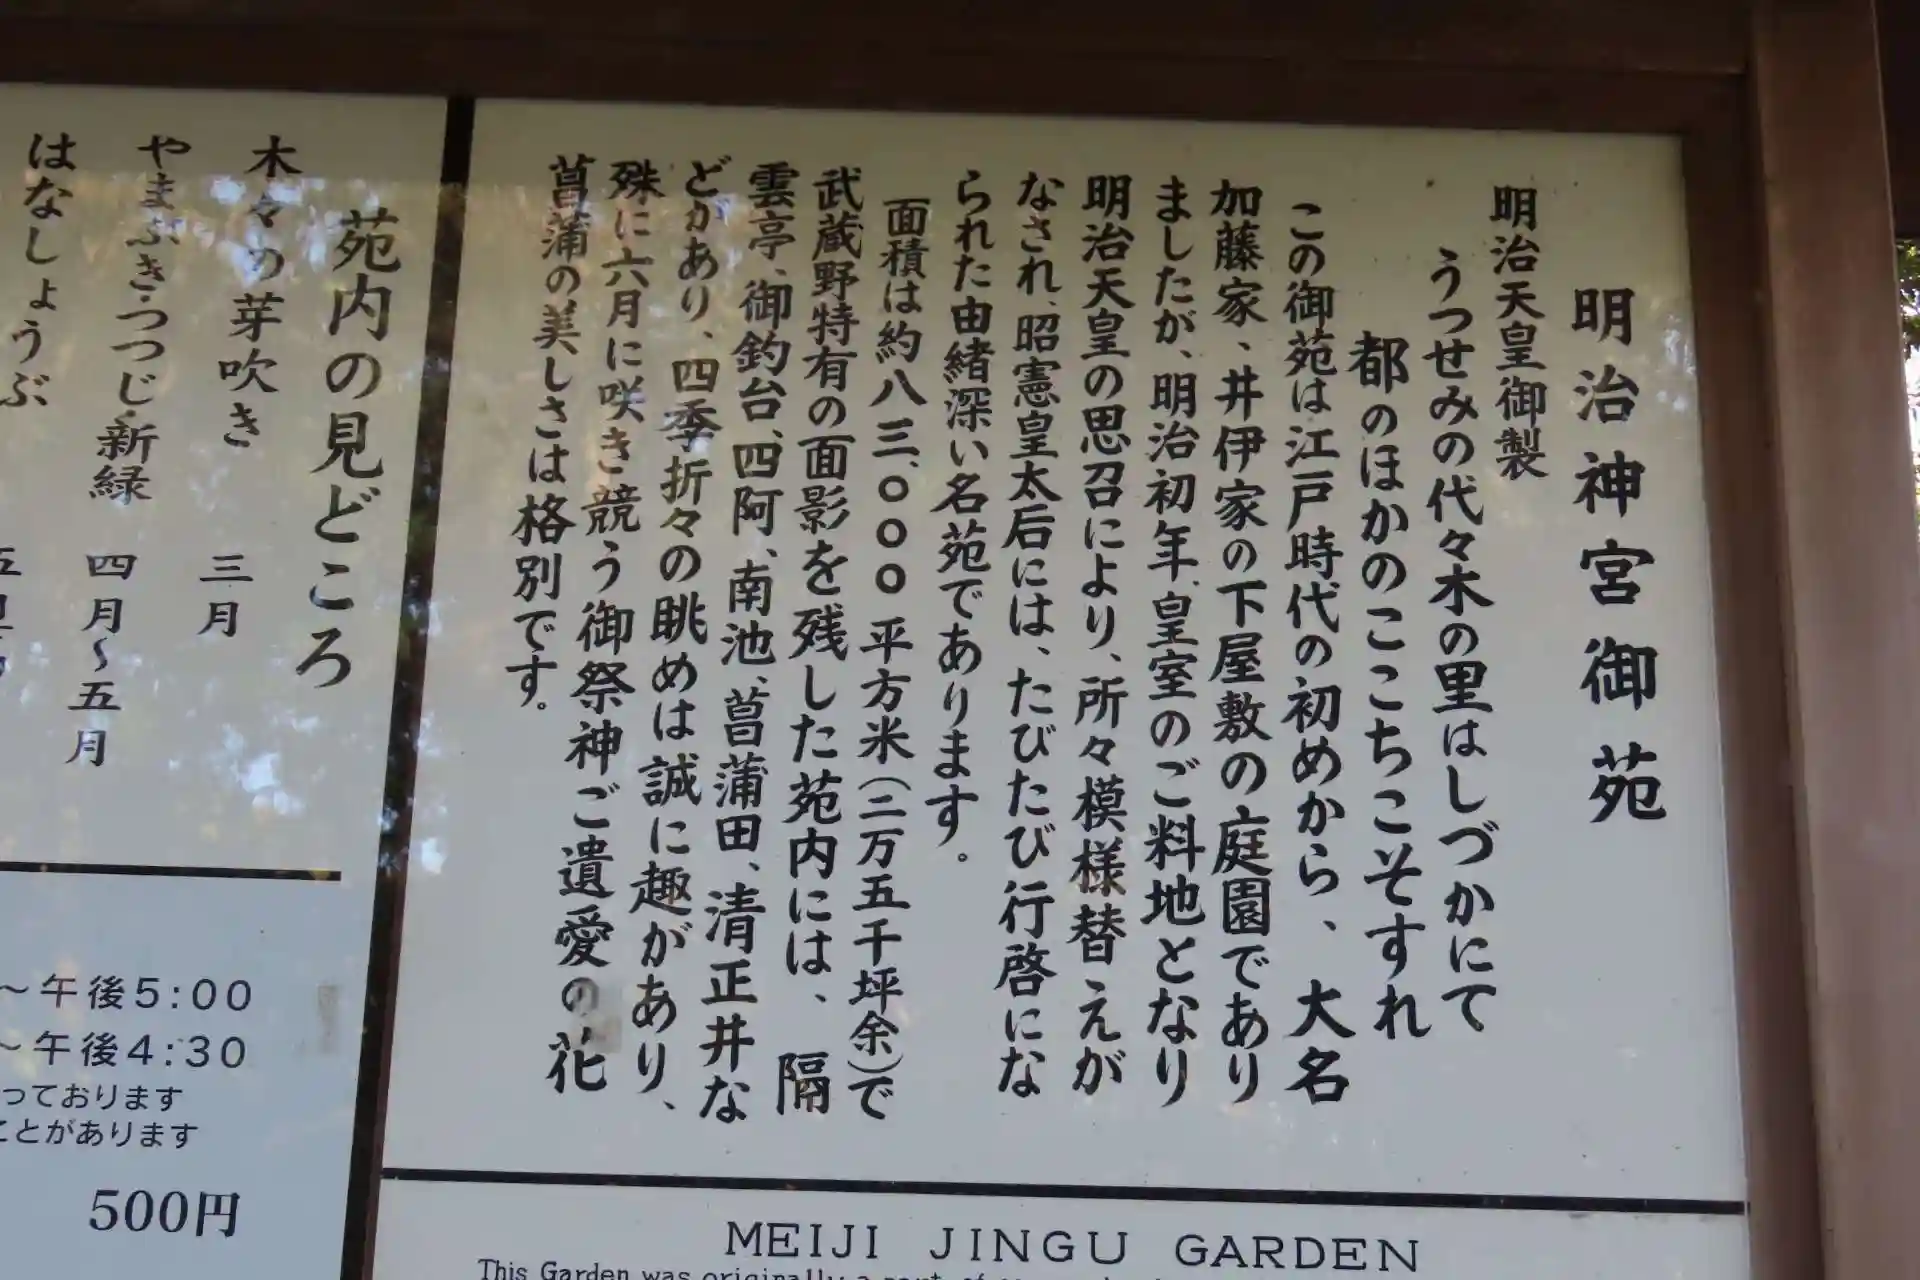 明治神宮御苑
明治天皇御製
うつせみの代々木の里はしづかにて
都のほかのここちこそすれ
この御苑は江戸時代の初めから、大名
加藤家、井伊家の下屋敷の庭園であり
ましたが、明治初年、皇室のご料地となり
明治天皇の思召により、所々模様替えが
なされ、昭憲皇太后には、たびたび行啓にな
られた由緒深い名苑であります。
面積は約八三、〇〇〇平方米(二万五千坪余)で
武蔵野特有の面影を残した苑内には、隔
雲亭、御釣台、四阿、南池、菖蒲田、清正井な
どがあり、四季折々の眺めは誠に趣があり、
殊に六月に咲き競う御祭神ご遺愛の花
菖蒲の美しさは格別です。
苑内の見どころ
木々の芽吹き 三月
やまぶき・つつじ・新緑 四月〜五月
はなしょうぶ
〜午後5:00
〜午後4:30
っております
ことがあります
500円
MEIJI JINGU GARDEN
This Garden was originally a part of